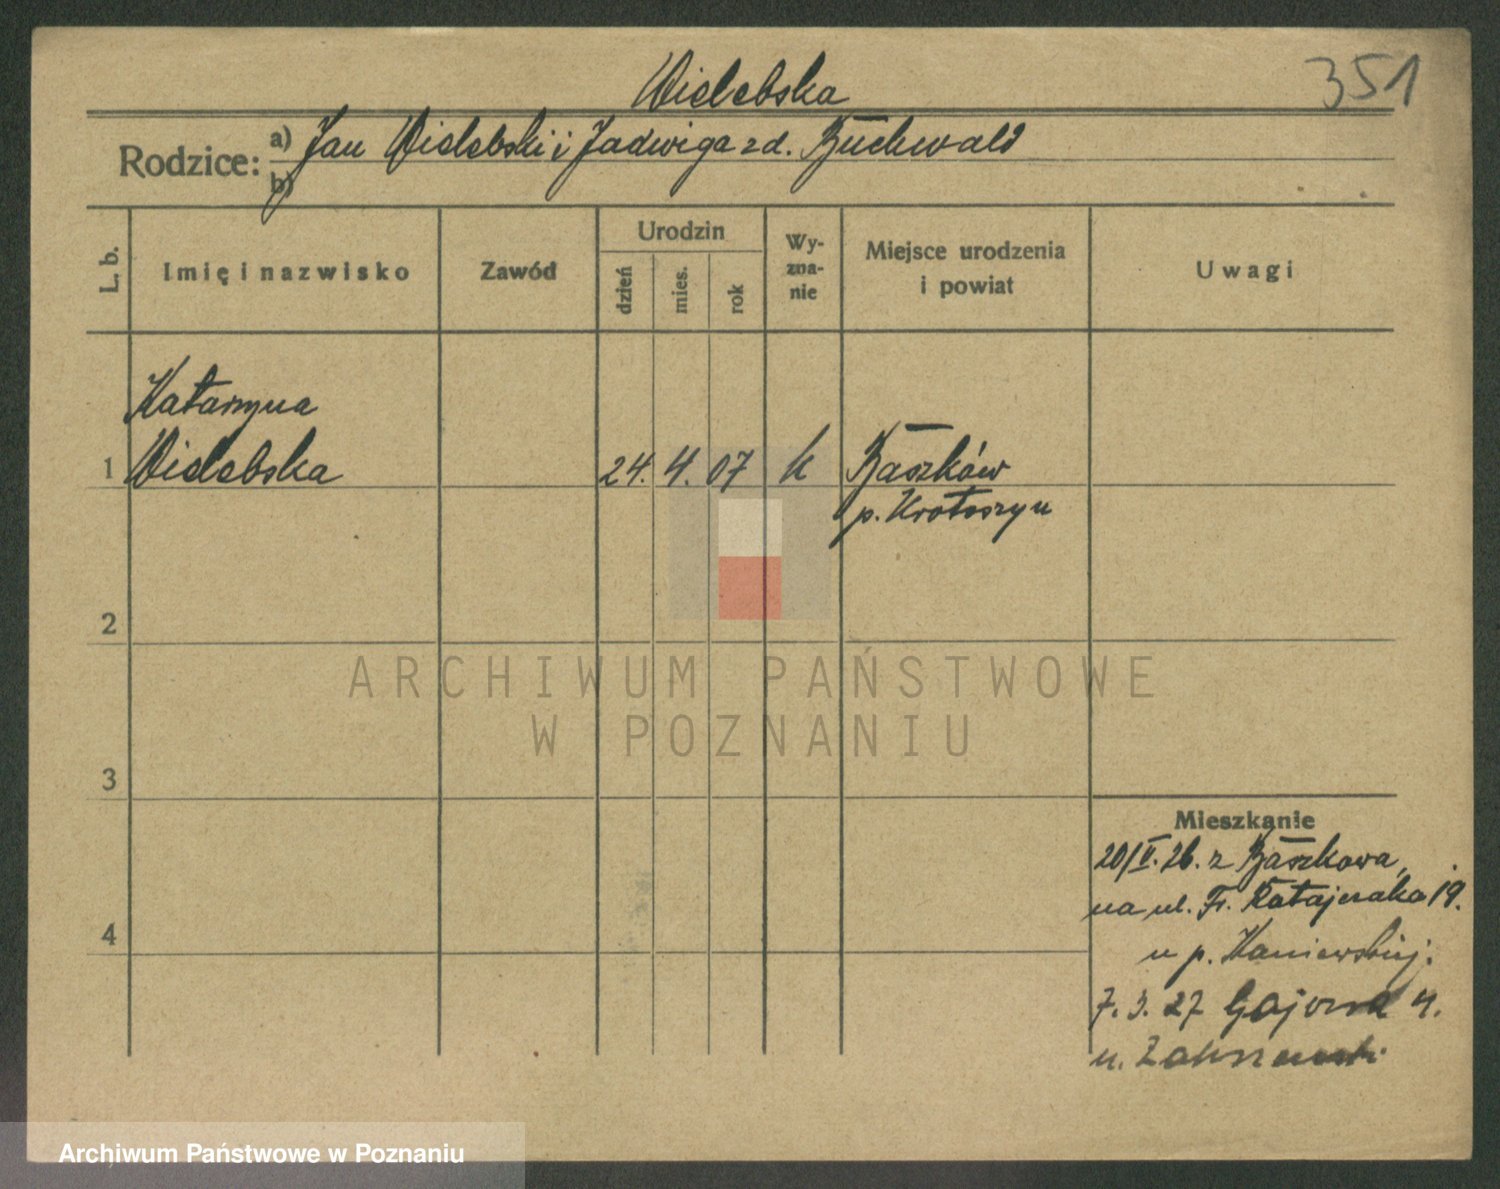 351
Wielebska
Rodzice: a) Jan Wielebski i Jadwiga zd. Buchwald
b)
L. b.
Imię i nazwisko
Zawód
Urodzin
dzień
mies.
rok
Wy-
zna-
nie
Miejsce urodzenia
i powiat
Uwagi
Katarzyna
1 Wielebska 24. 4. 07 k Baszków
p. Krotoszyn
2
ARCHIWUM PAŃSTWOWE
W POZNANIU
3
Mieszkanie
20/V. 26. z Baszkowa,
na ul. Fr. Ratajczaka 19.
4
u p. Kaniewskiej.
7. 3. 27 Gajowa 4.
u.
Archiwum Państwowe w Poznaniu